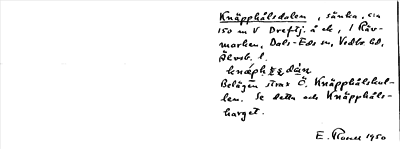 Knäpphålsdalen, sänka, ca
150 m V Dreftj. å ek, i Räv-
marken, Dals-Eds sn, Vedbo hd,
Älvsb. l.
Belägen strax Ö. Knäpphålskul-
len. Se detta och Knäpphåls-
berget.
E. 1950